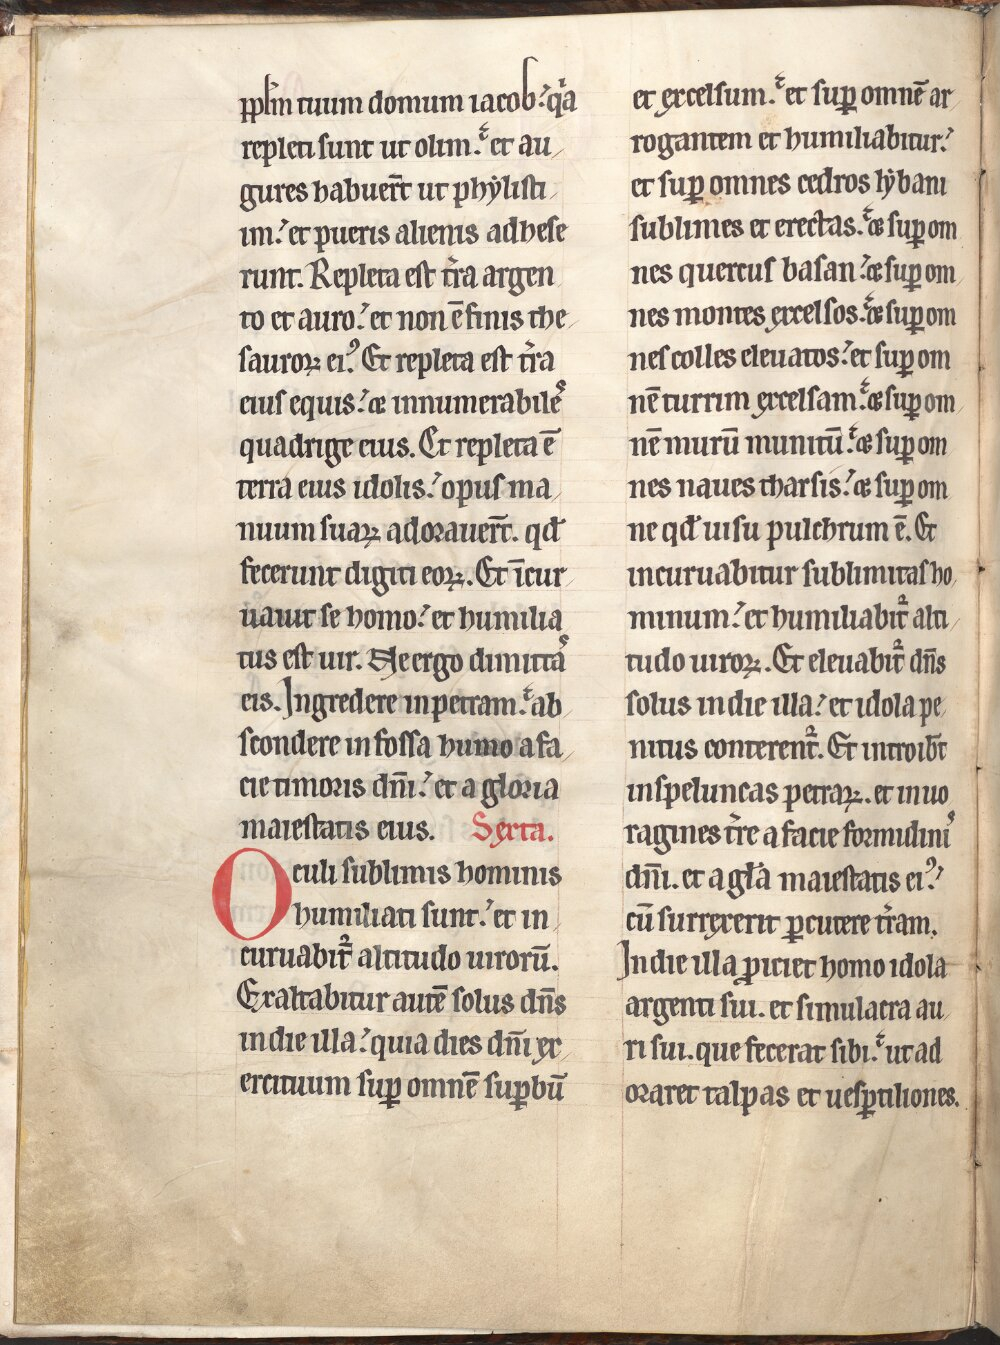 pplm̄ tuum domum iacob. qͥa
repleti sunt ut olim. et au
gures habuer̄t ut phẏlisti
im. et pueris alienis adhese
runt. Repleta est tr̄a argen
to et auro. et non ē finis the
sauroꝝ eiꝰ. Et repleta est tr̄a
eius equis. & innumerabiles
quadrige eius. Et repleta ē
terra eius idolis. opus ma
nuum suaꝝ adorauer̄t. qđ
fecerunt digiti eoꝝ. Et īcur
uauit se homo. et humilia
tus est uir. Ne ergo dimittas
eis. Ingredere in petram. ab
scondere in fossa humo a fa
cie timoris dn̄i. et a gloria
maiestatis eius. Sexta.
Oculi sublimis hominis
humiliati sunt. et in
curuabit᷑ altitudo uirorū.
Exaltabitur autē solus dn̄s
in die illa. quia dies dn̄i ex
ercituum suꝑ omnē suꝑbū
et excelsum. et suꝑ omnē ar
rogantem et humiliabitur.
et suꝑ omnes cedros lẏbani
sublimes et erectas. & suꝑ om
nes quercus basan. & suꝑ om
nes montes excelsos. & suꝑ om
nes colles eleuatos. et suꝑ om
nē turrim excelsam. & suꝑ om
nē murū munitū. & suꝑ om
nes naues tharsis. & suꝑ om
ne qđ uisu pulchrum ē. Et
incuruabitur sublimitas ho
minum. et humiliabit᷑ alti
tudo uiroꝝ. Et eleuabit᷑ dn̄s
solus in die illa. et idola pe
nitus conterent᷑. Et introibt̄
in speluncas petraꝝ. et in uo
ragines tr̄e a facie formidinis
dn̄i. et a gła maiestatis eiꝰ.
cū surrexerit ꝑcutere tr̄am.
In die illa ꝓiciet homo idola
argenti sui. et simulacra au
ri sui. que fecerat sibi. ut ad
oraret talpas et uesꝑtiliones.